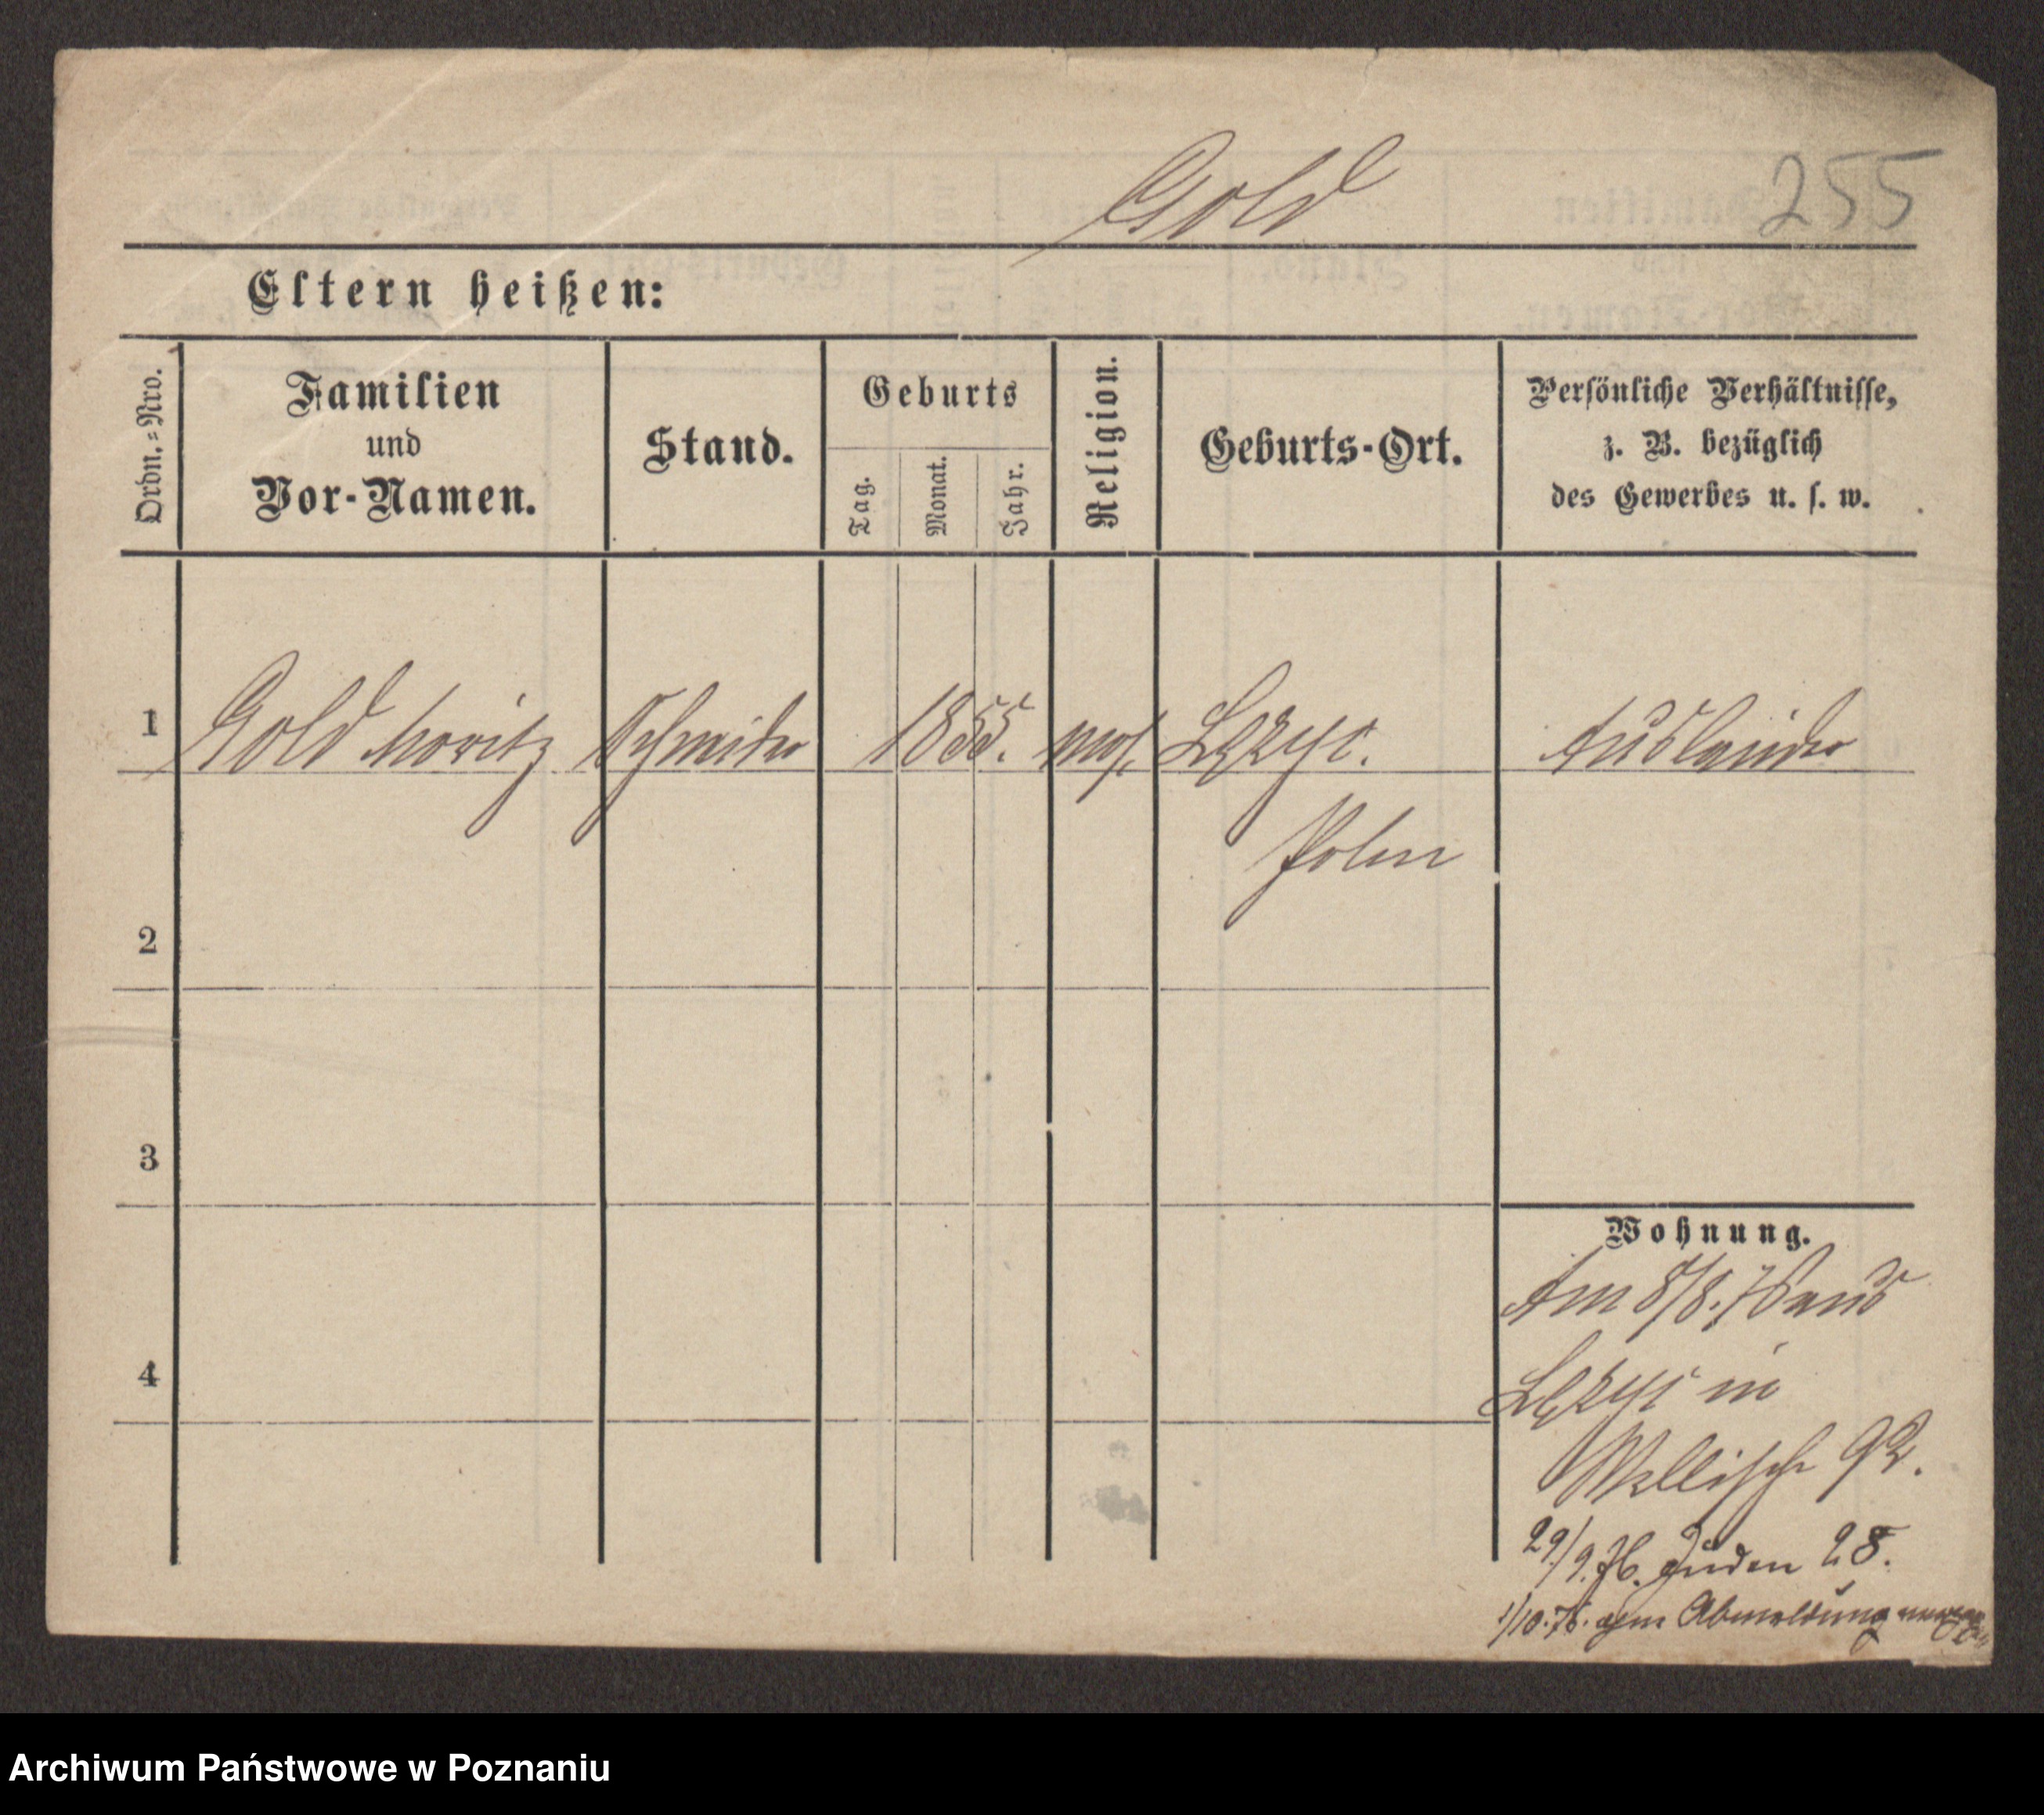 Gold
255
Eltern heißen:
Ordn.-Nro.
Familien
und
Vor-Namen.
Stand.
Geburts
Tag.
Monat.
Jahr.
Religion.
Geburts-Ort.
Persönliche Verhältnisse,
z. B. bezüglich
des Gewerbes u. s. w.
1 Gold Moritz Schneider 1855. mos. Ausländer
Polen
2
3
Wohnung.
Am 8/8. 76 aus
in
4
92.
29/9. 76. Juden 28.
1/10. 76. ohne Abmeldung
Archiwum Państwowe w Poznaniu